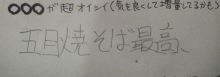 ○○○が超オイシイ(気を良くして増量してるかも)
五月焼そば最高、